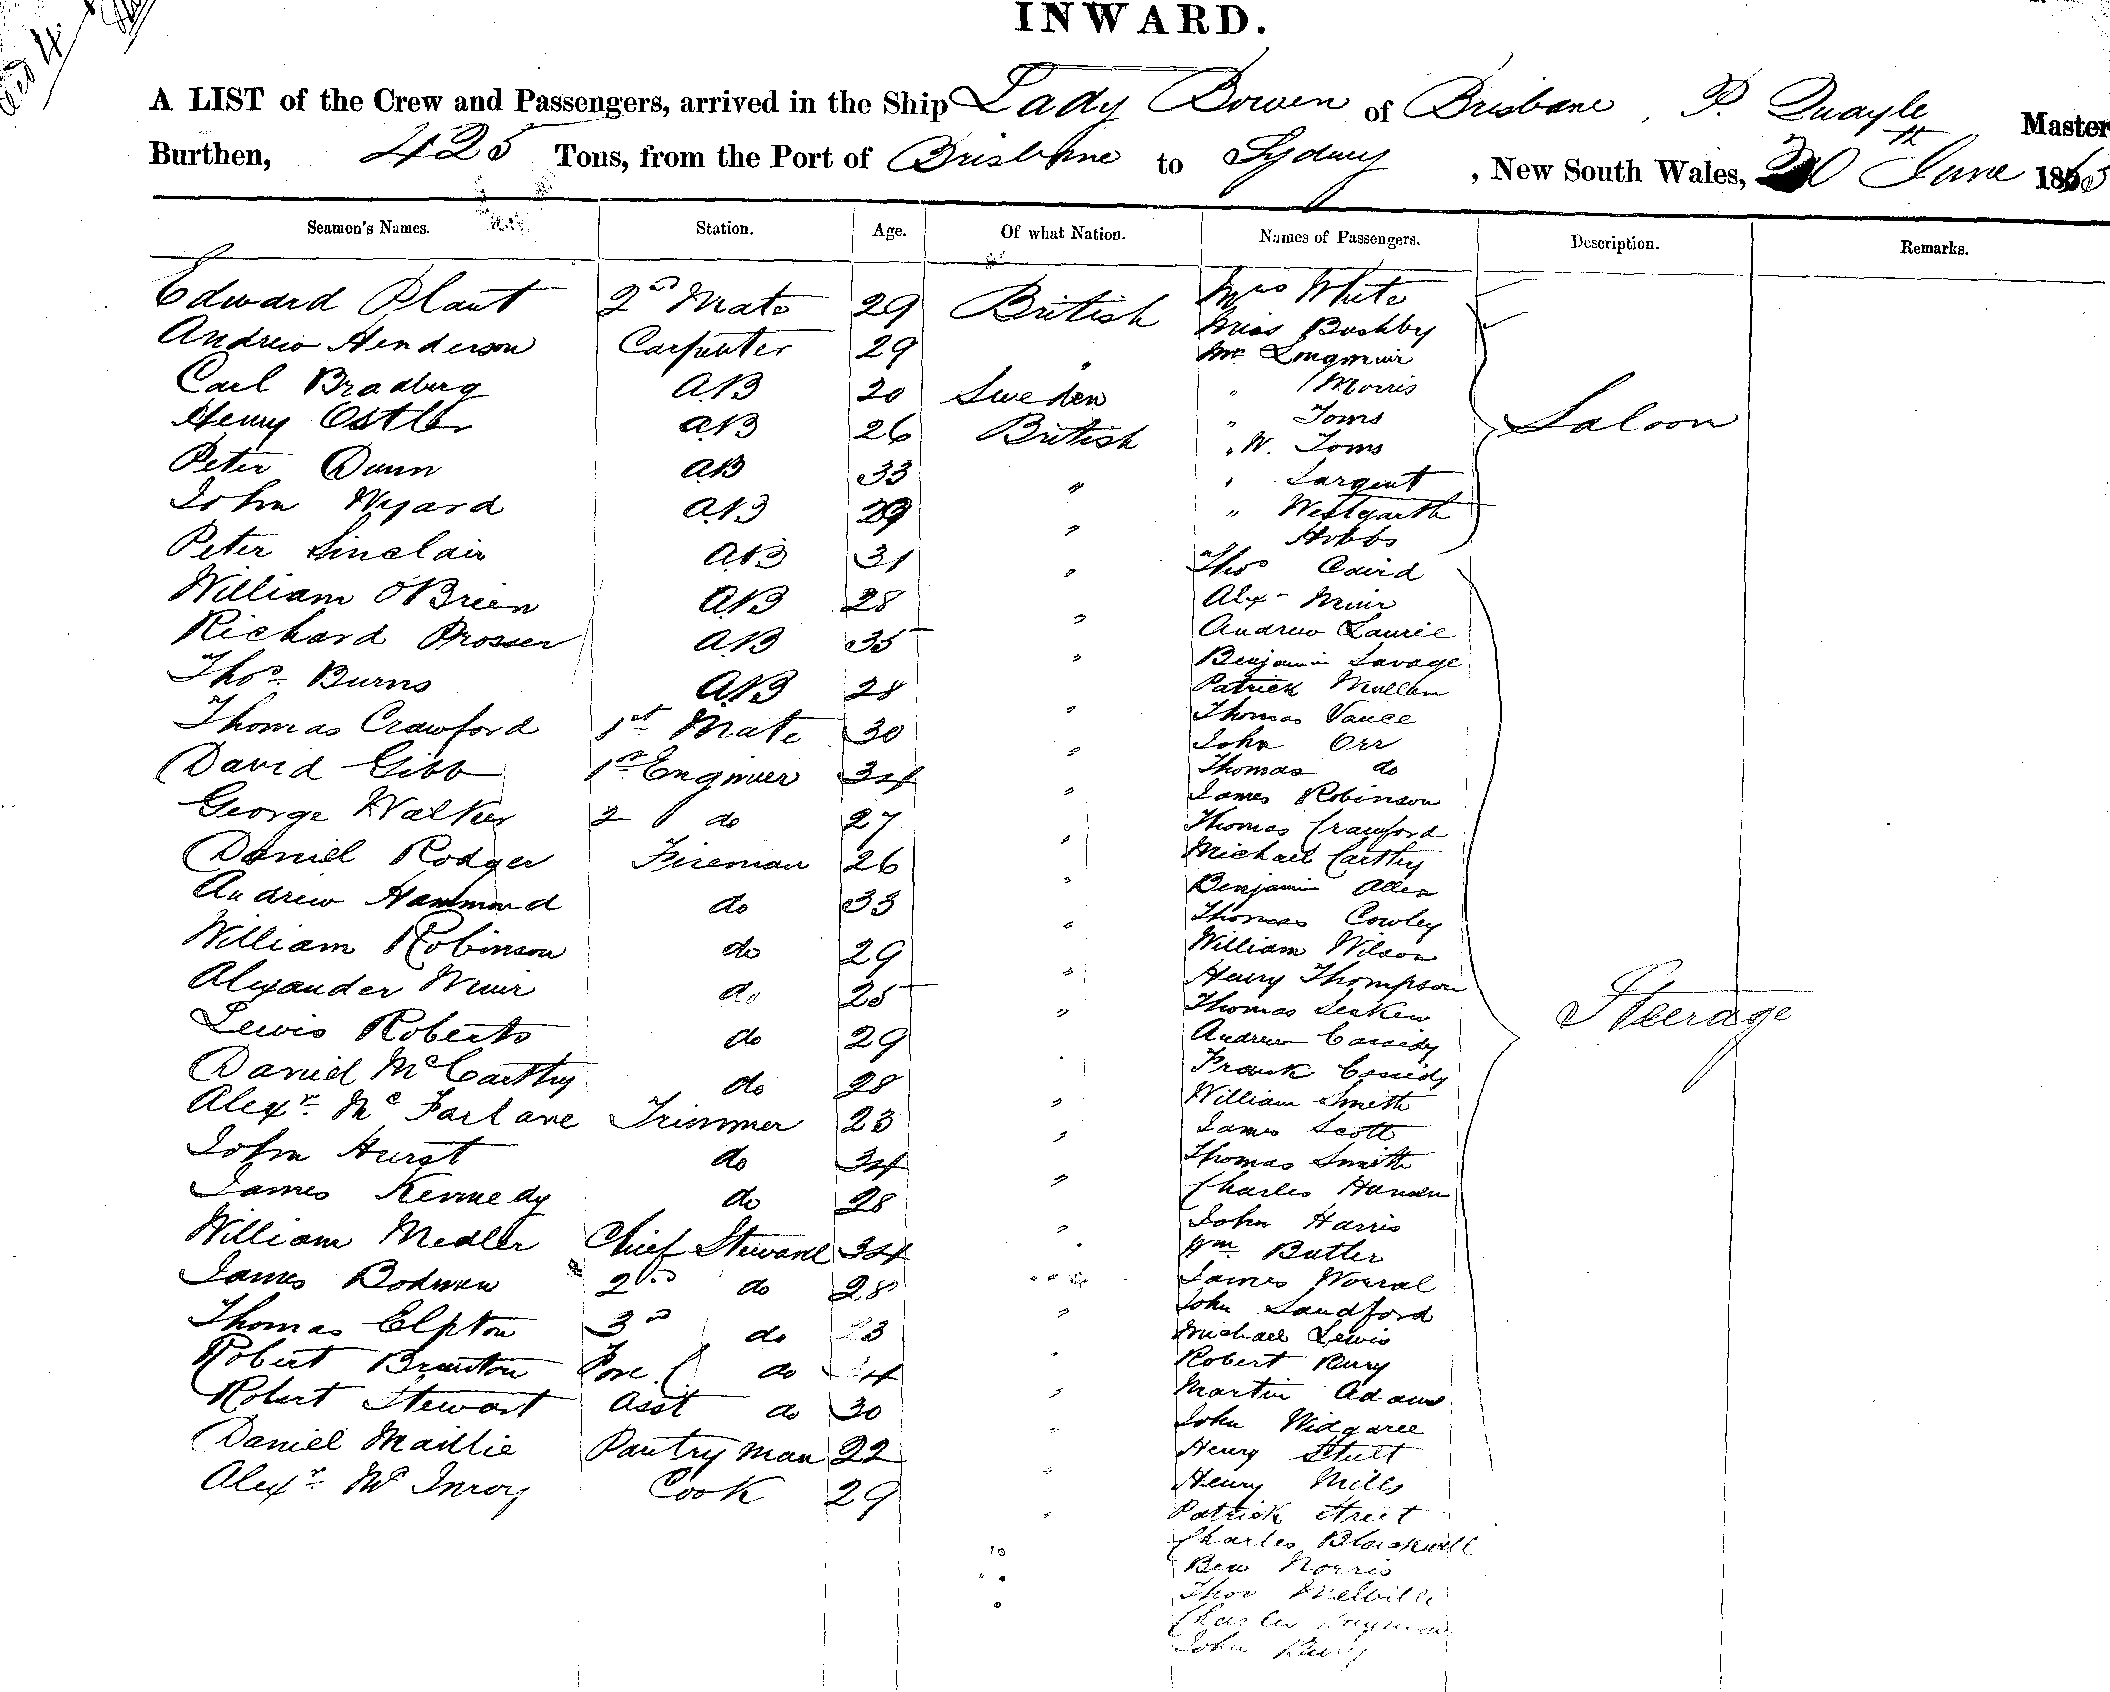 INWARD.
A LIST of the Crew and Passengers, arrived in the Ship Lady Bowen of Brisbane, P. Quayle Master
Burthen, 425 Tons, from the Port of Brisbane to Sydney, New South Wales, 30th June 1865
Seamen's Names. Station. Age. Of what Nation. Names of Passengers. Description. Remarks.
Edward Plant 2nd Mate 29 British Mrs White
Andrew Henderson Carpenter 29 " Miss Bushby
Mr Longmuir
Carl Bradberg AB 20 Sweden " Morris
Henry Ostler AB 26 British " Toms Saloon
" W. Toms
Peter Dunn AB 33 " " Sargent
John Wyard AB 29 " " Westgarth
" Hobbs
Peter Sinclair AB 31 " Thos Caird
William O'Brien AB 28 " Alex Muir
Andrew Laurie
Richard Prosser AB 35 " Benjamin Savage
Thos Burns AB 28 " Patrick Mullen
Thomas Vance
Thomas Crawford 1st Mate 30 " John Orr
David Gibb 1st Engineer 34 " Thomas do
James Robinson
George Walker 2 do 27 " Thomas Crawford
Daniel Rodger Fireman 26 " Michael Carthy
Benjamin Allen
Andrew Hammond do 33 " Thomas Cowley
William Robinson do 29 " William Wilson
Henry Thompson
Alexander Muir do 25 " Thomas Steerage
Lewis Roberts do 29 " Andrew Cassidy
Daniel McCarthy do 28 " Frank Cassidy
William Smith
Alexr McFarlane Trimmer 23 " James Scott
John Hurst do 34 " Thomas Smith
James Kennedy do 28 " Charles Hansen
John Harris
William Medler Chief Steward 34 " Wm Butler
James Bodman 2nd do 28 " James Worral
John Sandford
Thomas Elpton 3rd do 23 " Michael Lewis
Robert Brunton Fore do 24 " Robert
Robert Stewart Asst do 30 " Martin Adams
John Widgaree
Daniel Maillie Pantry man 22 " Henry Stutt
Alexr McInroy Cook 29 " Henry Mills
" Patrick Street
Charles Blackwell
Ben Norris
Thos Melville
Charles
John